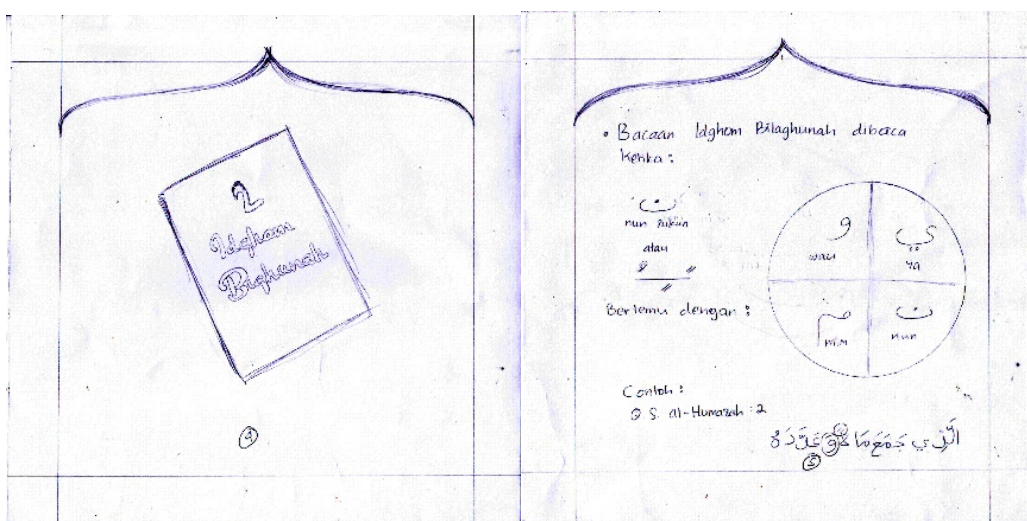 2
Idgham
Bighunah
4
• Bacaan Idghom Bilaghunah dibaca
Ketika :
ن
nun sukun
atau
Bertemu dengan :
و
wau
ي
ya
م
mim
ن
nun
Contoh :
Q S. al-Humazah : 2
الَّذِي جَمَعَ مَا
5